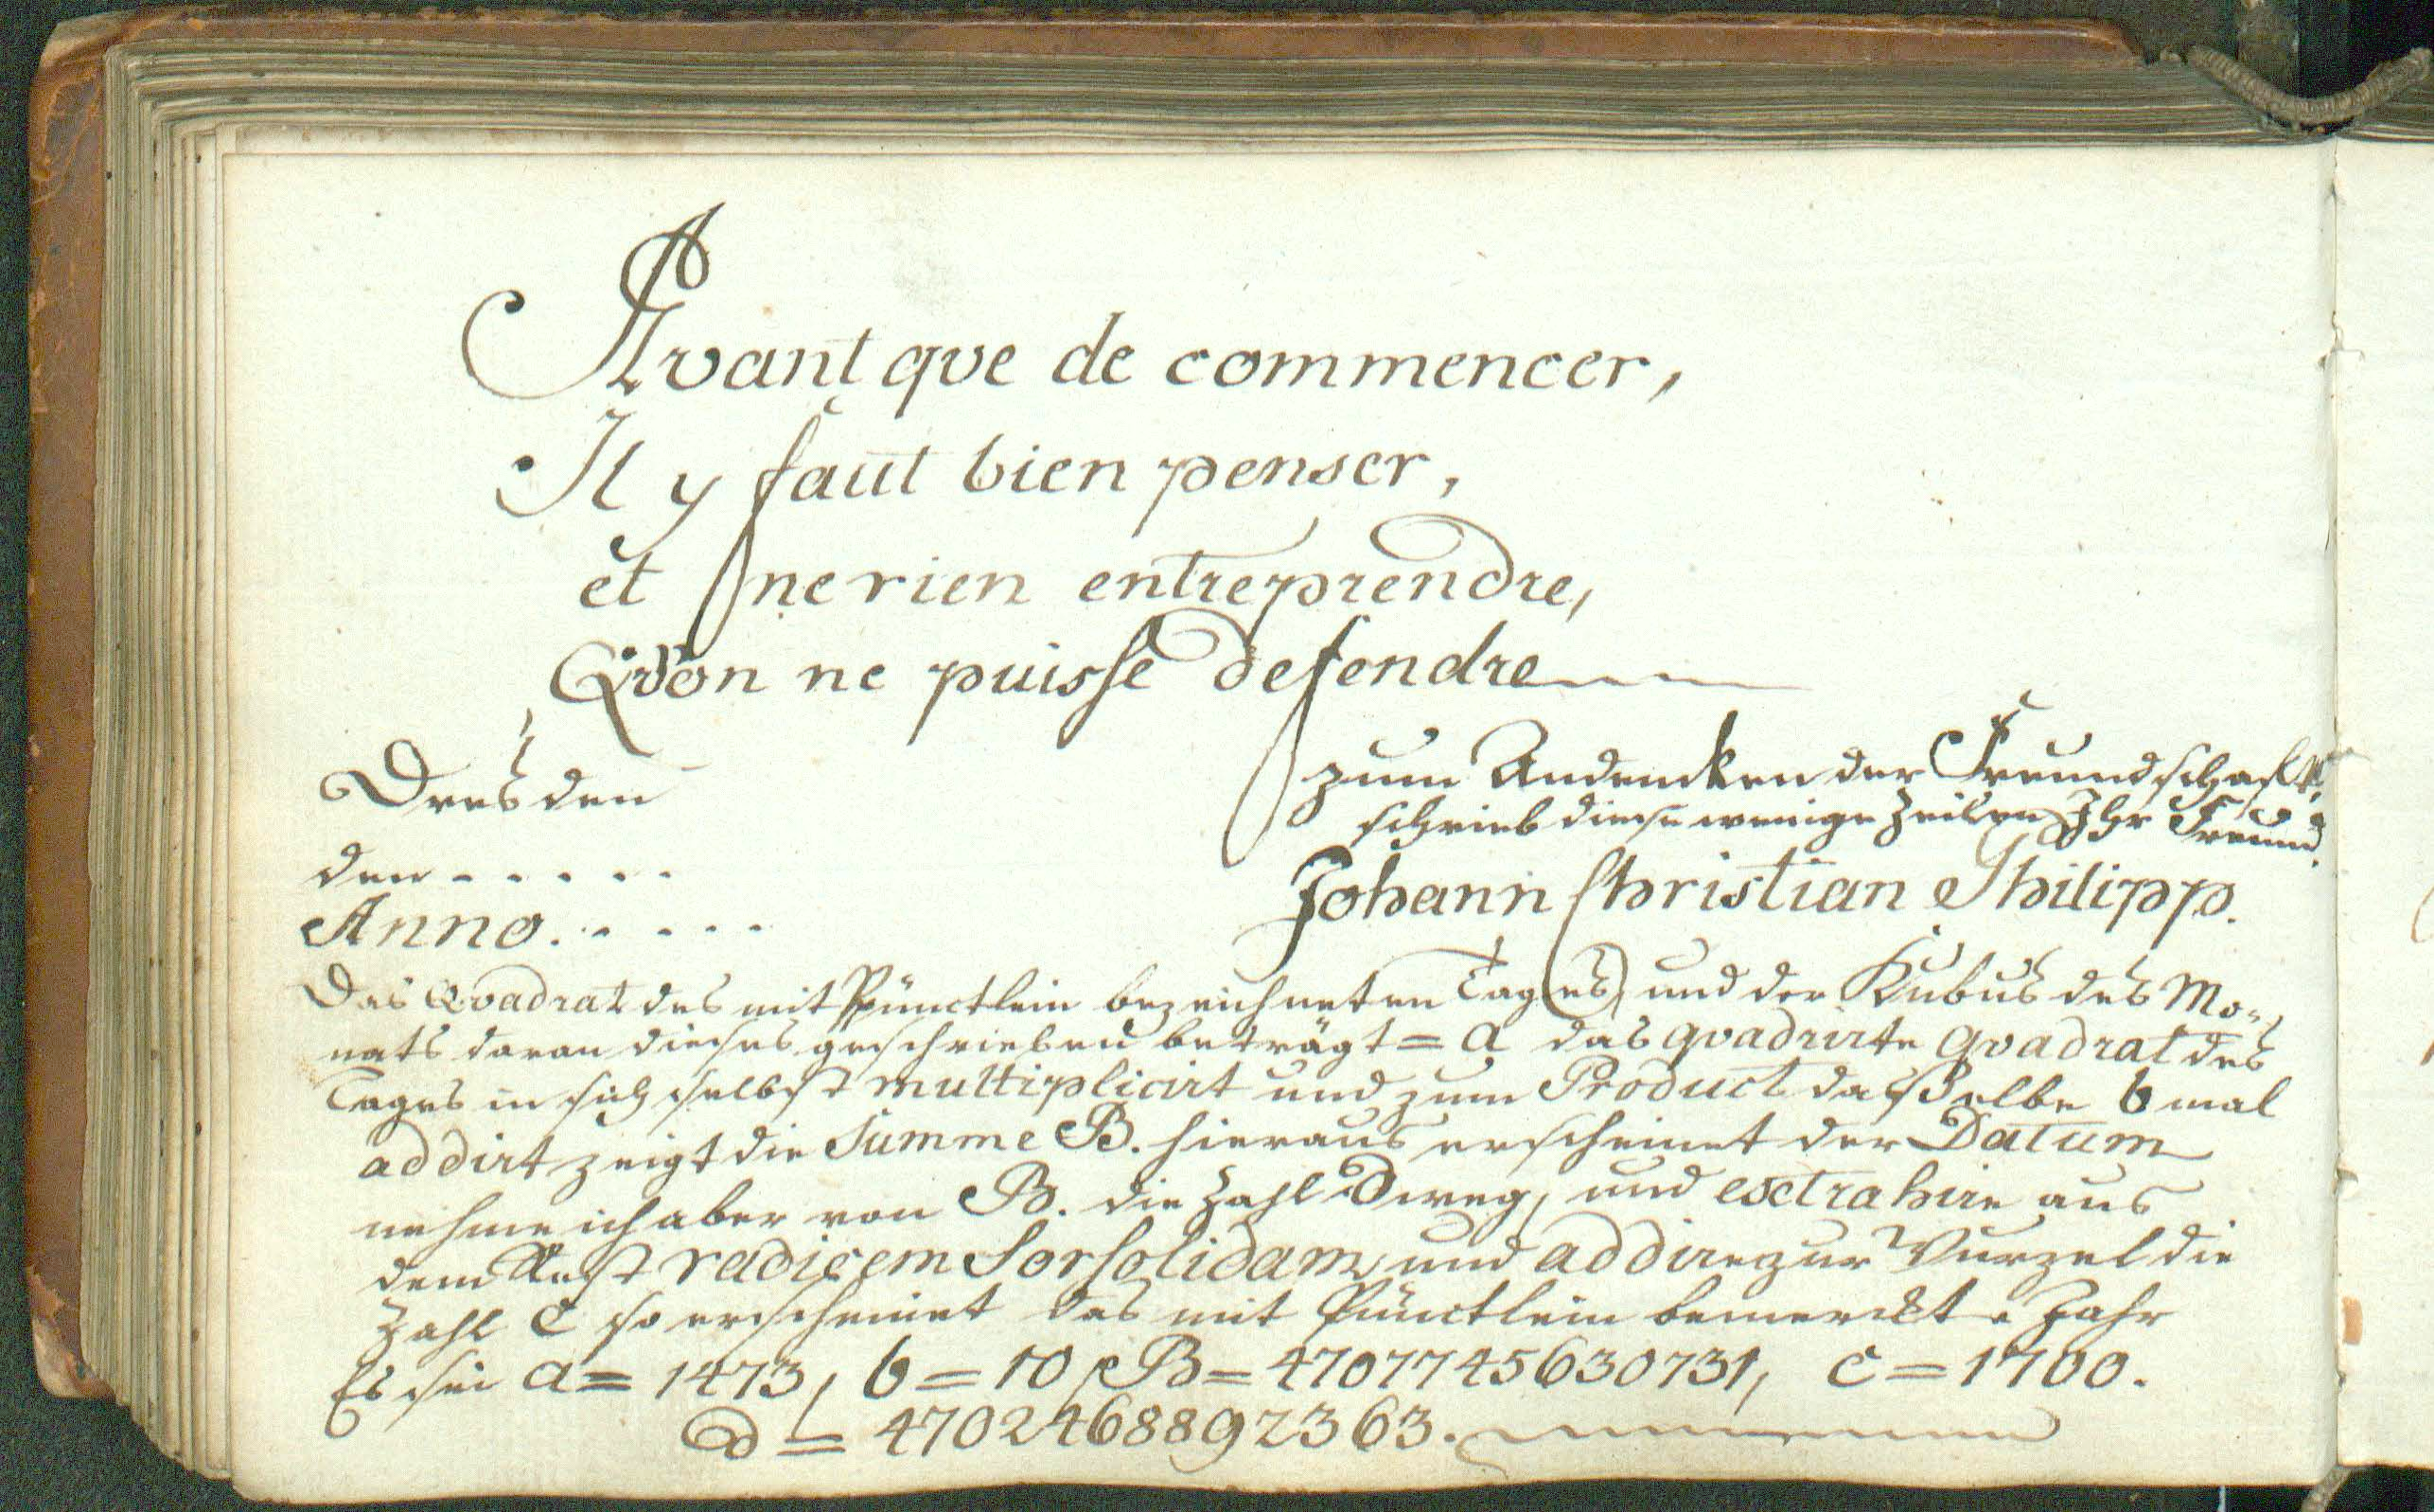 Avant qve de commencer,
Il y faut bien penser,
et ne rien entreprendre,
Qv'on ne puisse defendre
Dresden
den . . . . .
Anno . . . . .
zum Andencken der Freundschafft
schrieb diese wenige Zeilen Ihr Freund.
Johann Christian Philipp.
Das Qvadrat des mit Pünctlein bezeichneten Tages, und der Kubus des Mo-
nats daran dieses geschrieben beträgt = a das qvadrirte qvadrat des
Tages in sich selbst multiplicirt und zum Product daßelbe b mal
addirt zeigt die Summe B. hieraus erscheinet der Datum
nehme ich aber von B. die Zahl d weg, und extrahire aus
dem Rest radicem Sorsolidam, und addire zur Wurzel die
Zahl C so erscheinet das mit Pünctlein bemerckte Jahr
Es sei a = 1473, b = 10, B = 4707745630731, c = 1700.
d = 4702468892363.